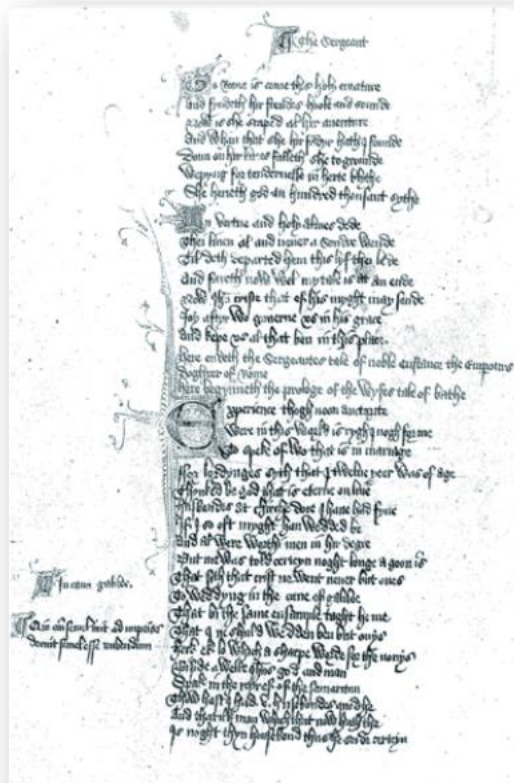 The Sergeant
To Rome is come this holy creature
And fyndeth hir frendes hoole and sounde
Now is she scaped al hir aventure
And whan that she hir fadyr hath founde
Doun on hir kne falleth she to grounde
Wepyng for tendernesse in herte blythe
She herieth god an hundred thousant sythe
In vertue and holy almes dede
Thei liven al and never a sondre wende
Til deth departed hem this lyf thei lede
And fareth now wel my tale is at an ende
Now Ihu crist that of his myght may sende
Joy aftyr wo governe us in his grace
And kepe us al that ben in this place.
here endeth the Sergeantes tale of noble custance the Emperours
doghter of Rome
here begynneth the prologe of the Wyfes tale of bathe
Experience thogh noon auctorite
Were in this world is ryght ynogh for me
To speke of wo that is in mariage
For lordynges syth that I twelve yeer was of age
Thonked be god that is eterne on live
Husbondes at chirche dore I have had fyve
If I so oft myght han wedded be
And al were worthi men in hir degre
But me was told certeyn noght longe a goon is
That syth that crist ne went never but ones
To weddyng in the cane of galile
That bi the same ensample taght he me
That I ne shuld wedden ben but onys
Herk ek lo which a sharpe word for the nonys
Biside a welle Ihus god and man
Spak in the repreve of the samaritan
Thow hast I had v husbondes quod he
And that ilk man which that now hath the
Is noght thyn housbond thus he seide certeyn
In cana galilee.